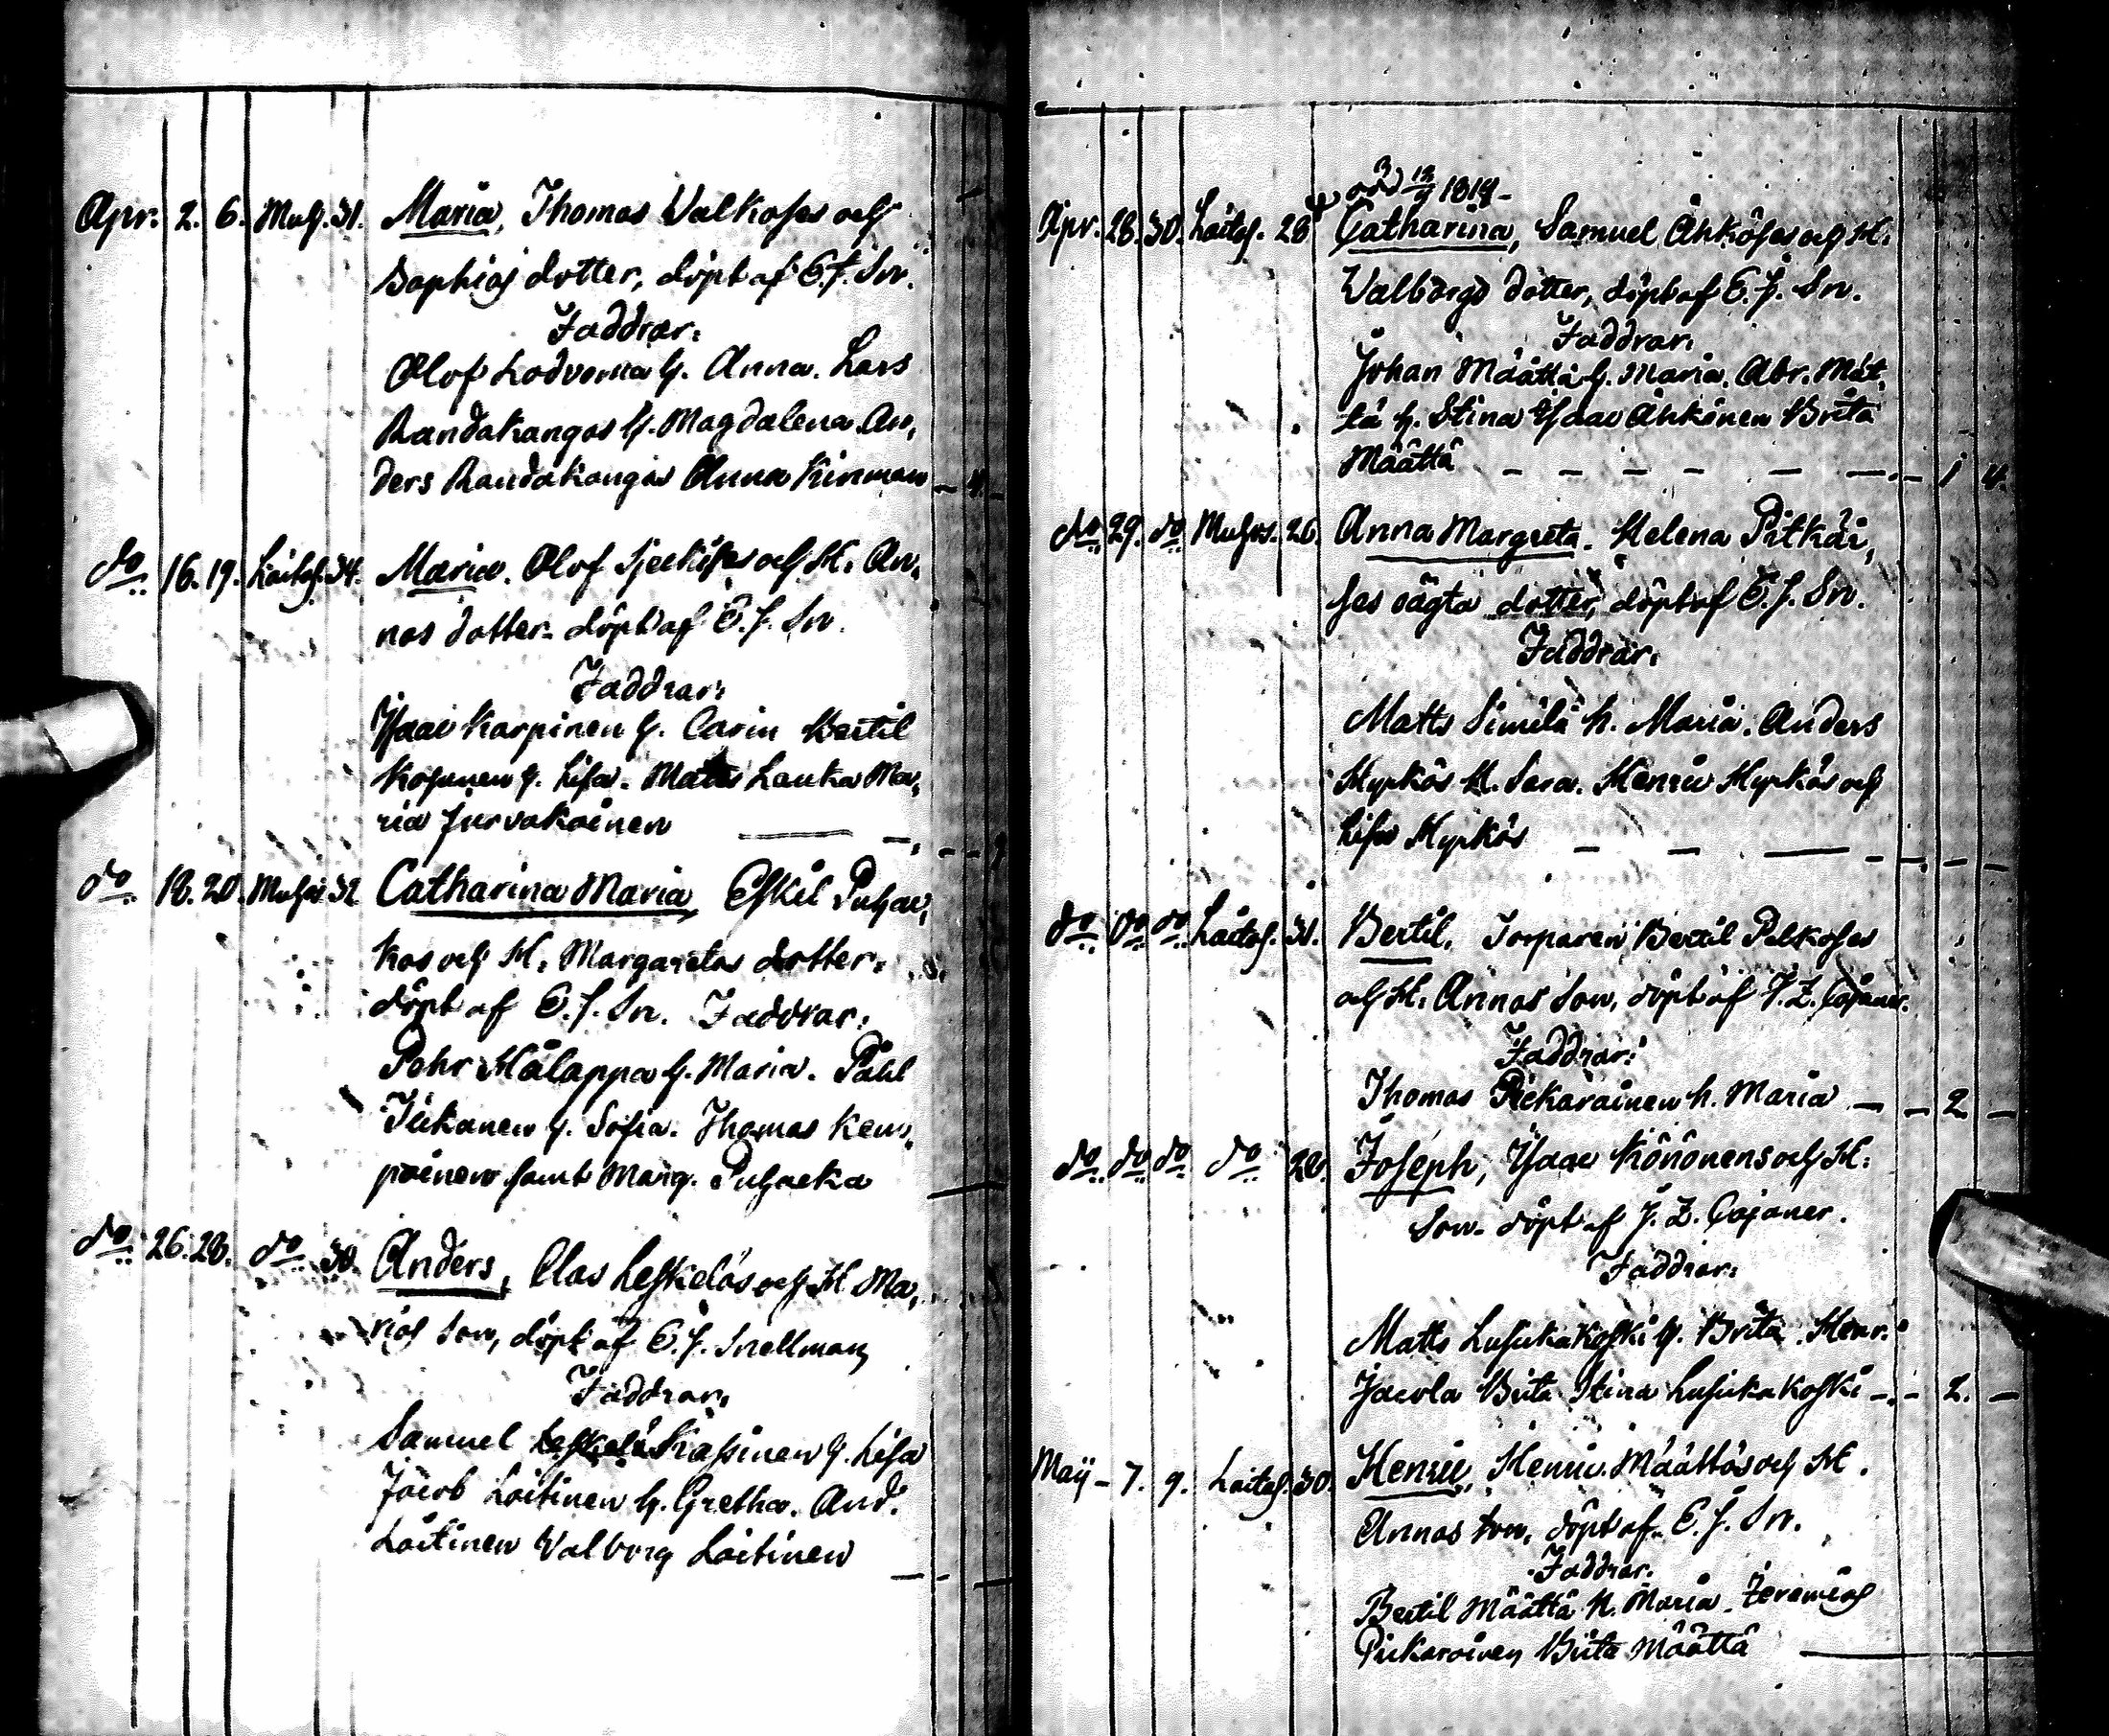 Apr. 2. 6. Muh. 31. Maria, Thomas Valkoses och
Sophias dotter, döpt af E. J. Sn.
Faddrar:
Olof Lodvoma h. Anna. Lars
Randakangas h. Magdalena. An,
ders Randakangas Anna Kinman – 4. –
do 16. 19. Laitas. 34. Maria. Olof och H. An,
nas dotter. döpt af E. J. Sn.
Faddrar:
Isaac Karpinen h. Carin Bertil
Kosunen h. Lisa. Matts Lauka Ma,
ria Jurvakainen
do 18. 20. Muhos 32 Catharina Maria, Eskil Puhac,
kas och H. Margaretas dotter.
döpt af E. J. Sn. Faddrar:
Pehr Hälappa h. Maria. Påhl
Tükanen h. Sofia. Thomas Kem,
painen samt Marg. Puhacka
do 26. 28. do 30. Anders, Clas Leskeläs och H Ma,
rias son, döpt af E. J. Snellman
Faddrar:
Samuel Krassinen h. Lisa
Jacob Laitinen h. Gretha. And.
Laitinen Valborg Laitinen
1814 –
Apr. 28. 30. Laitas. 28 Catharina, Samuel Åhköses och H.
Valborgs dotter, döpt af E. J. Sn.
Faddrar:
Johan Määttä h. Maria. Abr. Mät,
tä h. Stina Isaac Åhkönen Brita
Määttä – 1 4.
do 29. do Muhos. 26. Anna Margreta. Helena Pitkäi,
ses oägta dotter, döpt af E. J. Sn.
Faddrar:
Matts Similä h. Maria. Anders
Hyrkäs H. Sara. Henric Hyrkäs och
Lisa Hyrkäs
do do do Laitas. 31. Bertil. Torparen Bertil Pelkoses
och H. Annas Son, döpt af J. Z. Cajaner.
Faddrar:
Thomas Pickarainen h. Maria – – 2 –
do do do do 28. Joseph, Isaac Könönens och H.
Son. döpt af J. Z. Cajaner.
Faddrar:
Matts Lusikakoski h. Brita. Henr.
Jacola Brita Stina Lusikakoski – – 2. –
Maij – 7. 9. Laitas. 30. Henric, Henric Määttäs och H.
Annas son, döpt af E. J. Sn.
Faddrar:
Bertil Määttä h. Maria. Jeremias
Pickarainen Brita Määttä